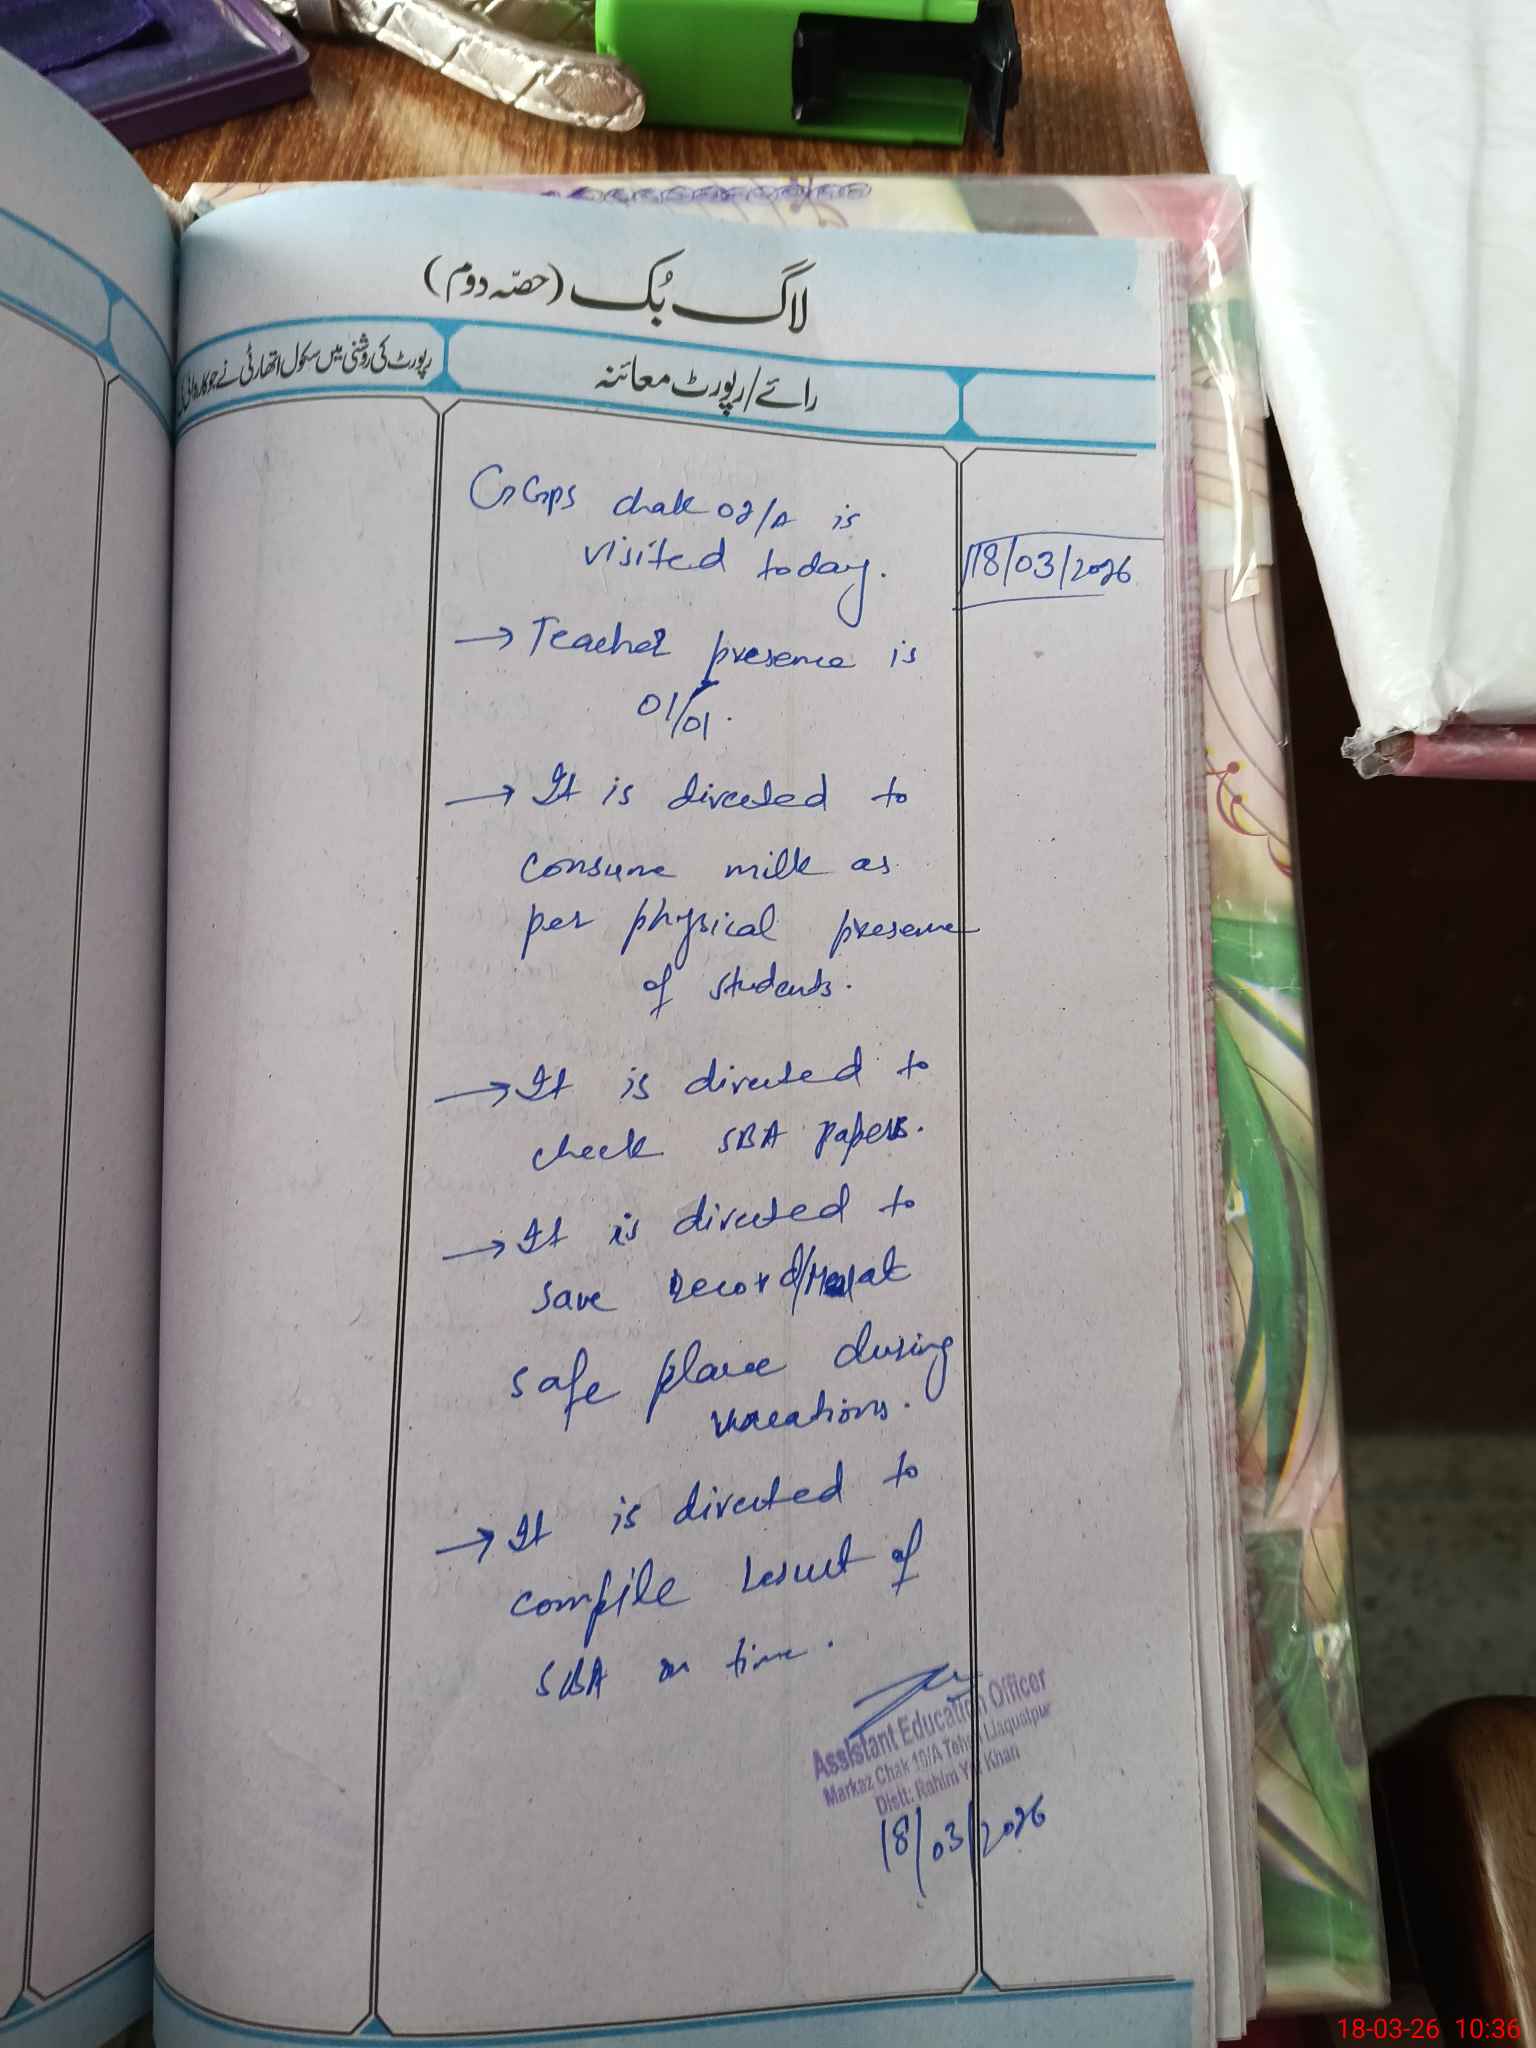 لاگ بُک (حصّہ دوم)
رائے/رپورٹ معائنہ
رپورٹ کی روشنی میں سکول اتھارٹی نے جو کارروائی
GGPS chak 02/A is
visited today.
18/03/2026
→ Teacher presence is
01/01.
→ It is directed to
consume milk as
per physical presence
of students.
→ It is directed to
check SBA papers.
→ It is directed to
save record/ at
safe place during
vacations.
→ It is directed to
compile result of
SBA on time.
Assistant Education Officer
Markaz Chak 19/A Tehsil Liaquatpur
Distt: Rahim Yar Khan
18/03/2026
18-03-26 10:36